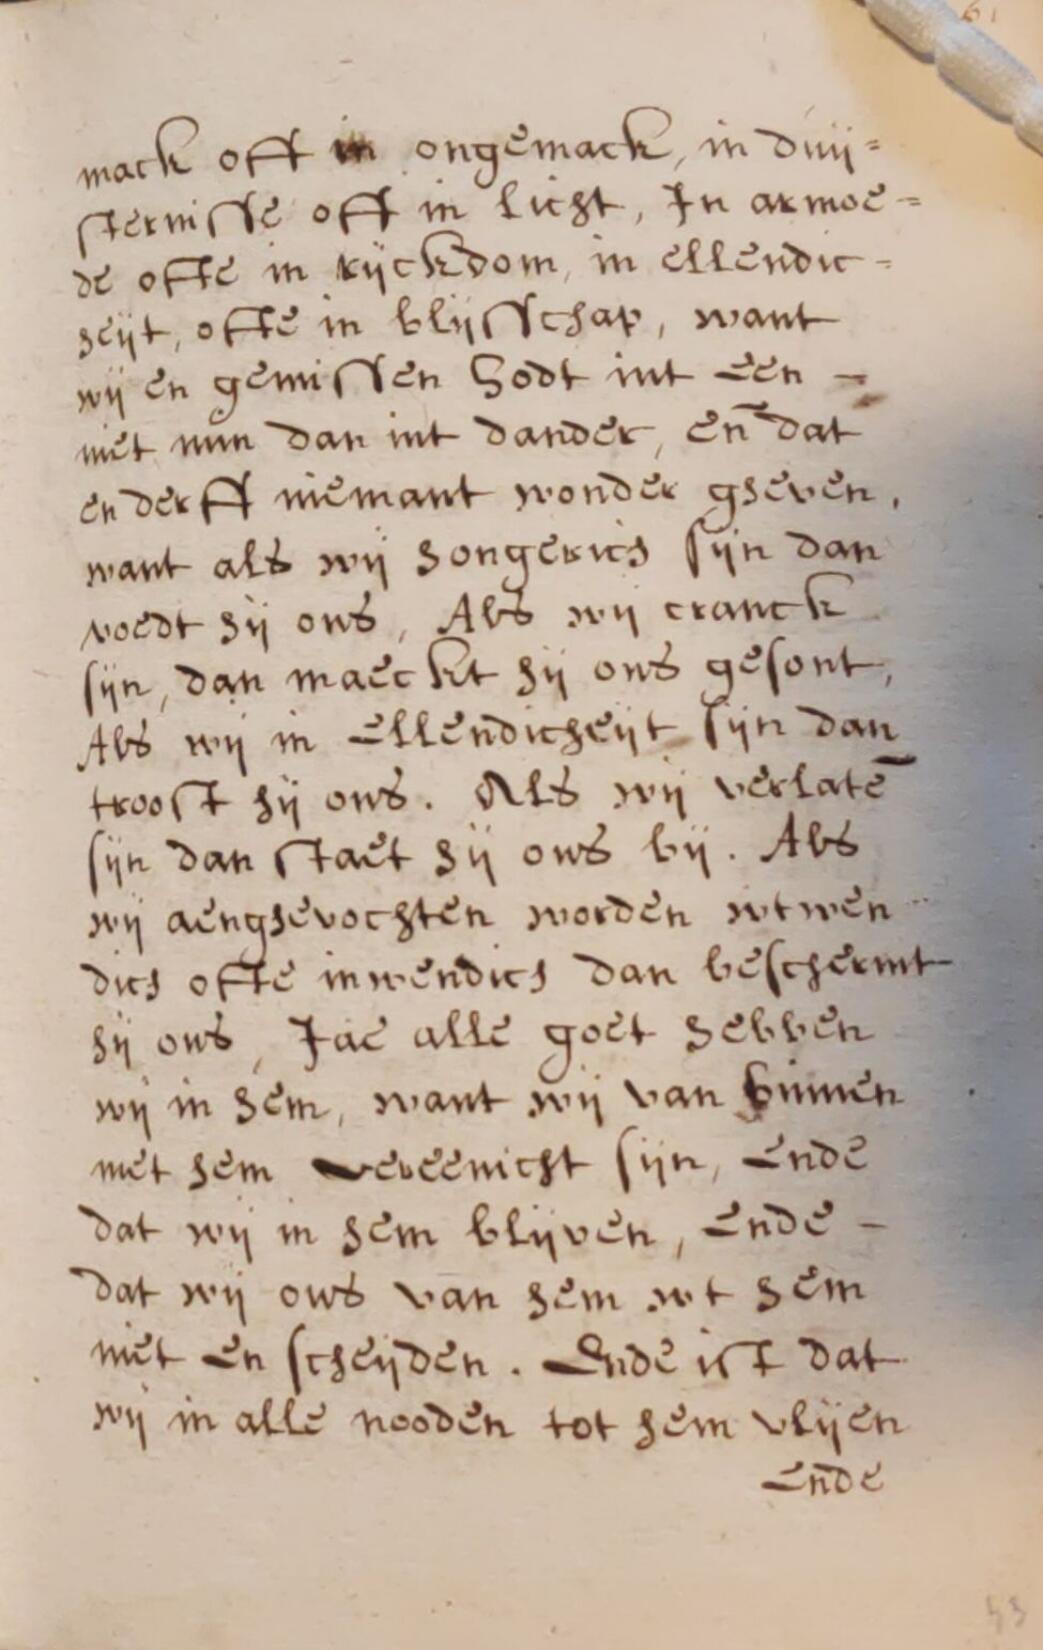 61
mack oft in ongemack, in duij=
sternisse oft in licht, In armoe=
de ofte in rijckdom, in ellendic=
heijt, ofte in blijsschap, want
wij en gemissen Godt int een -
niet min dan int dander, eñ dat
en derff niemant wonder gheven,
want als wij hongerich sijn dan
voedt hij ons, Als wij cranck
sijn, dan maeckt hij ons gesont,
Als wij in ellendicheijt sijn dan
troost hij ons. Als wij verlatē
sijn dan staet hij ons bij. Als
wij aenghevochten worden wtwen=
dich ofte inwendich dan beschermt
hij ons, Jae alle goet hebben
wij in hem, want wij van binnen
met hem vereenicht sijn, ende
dat wij in hem blijven, ende -
dat wij ons van hem wt hem
niet en scheijden. Ende ist dat
wij in alle nooden tot hem vlijen
Ende
53